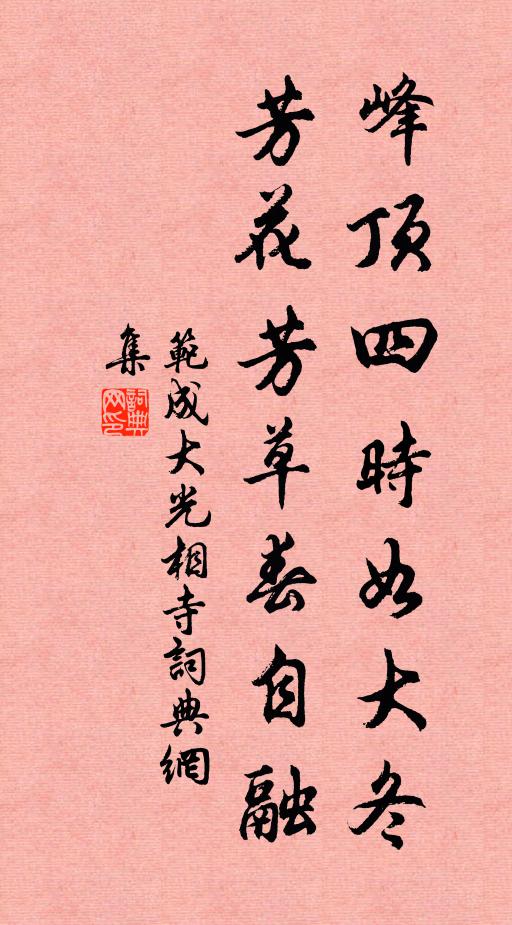 峰頂四時如大冬
芳花芳草春自融
範成大光相寺詞典網
集
詞典
网印